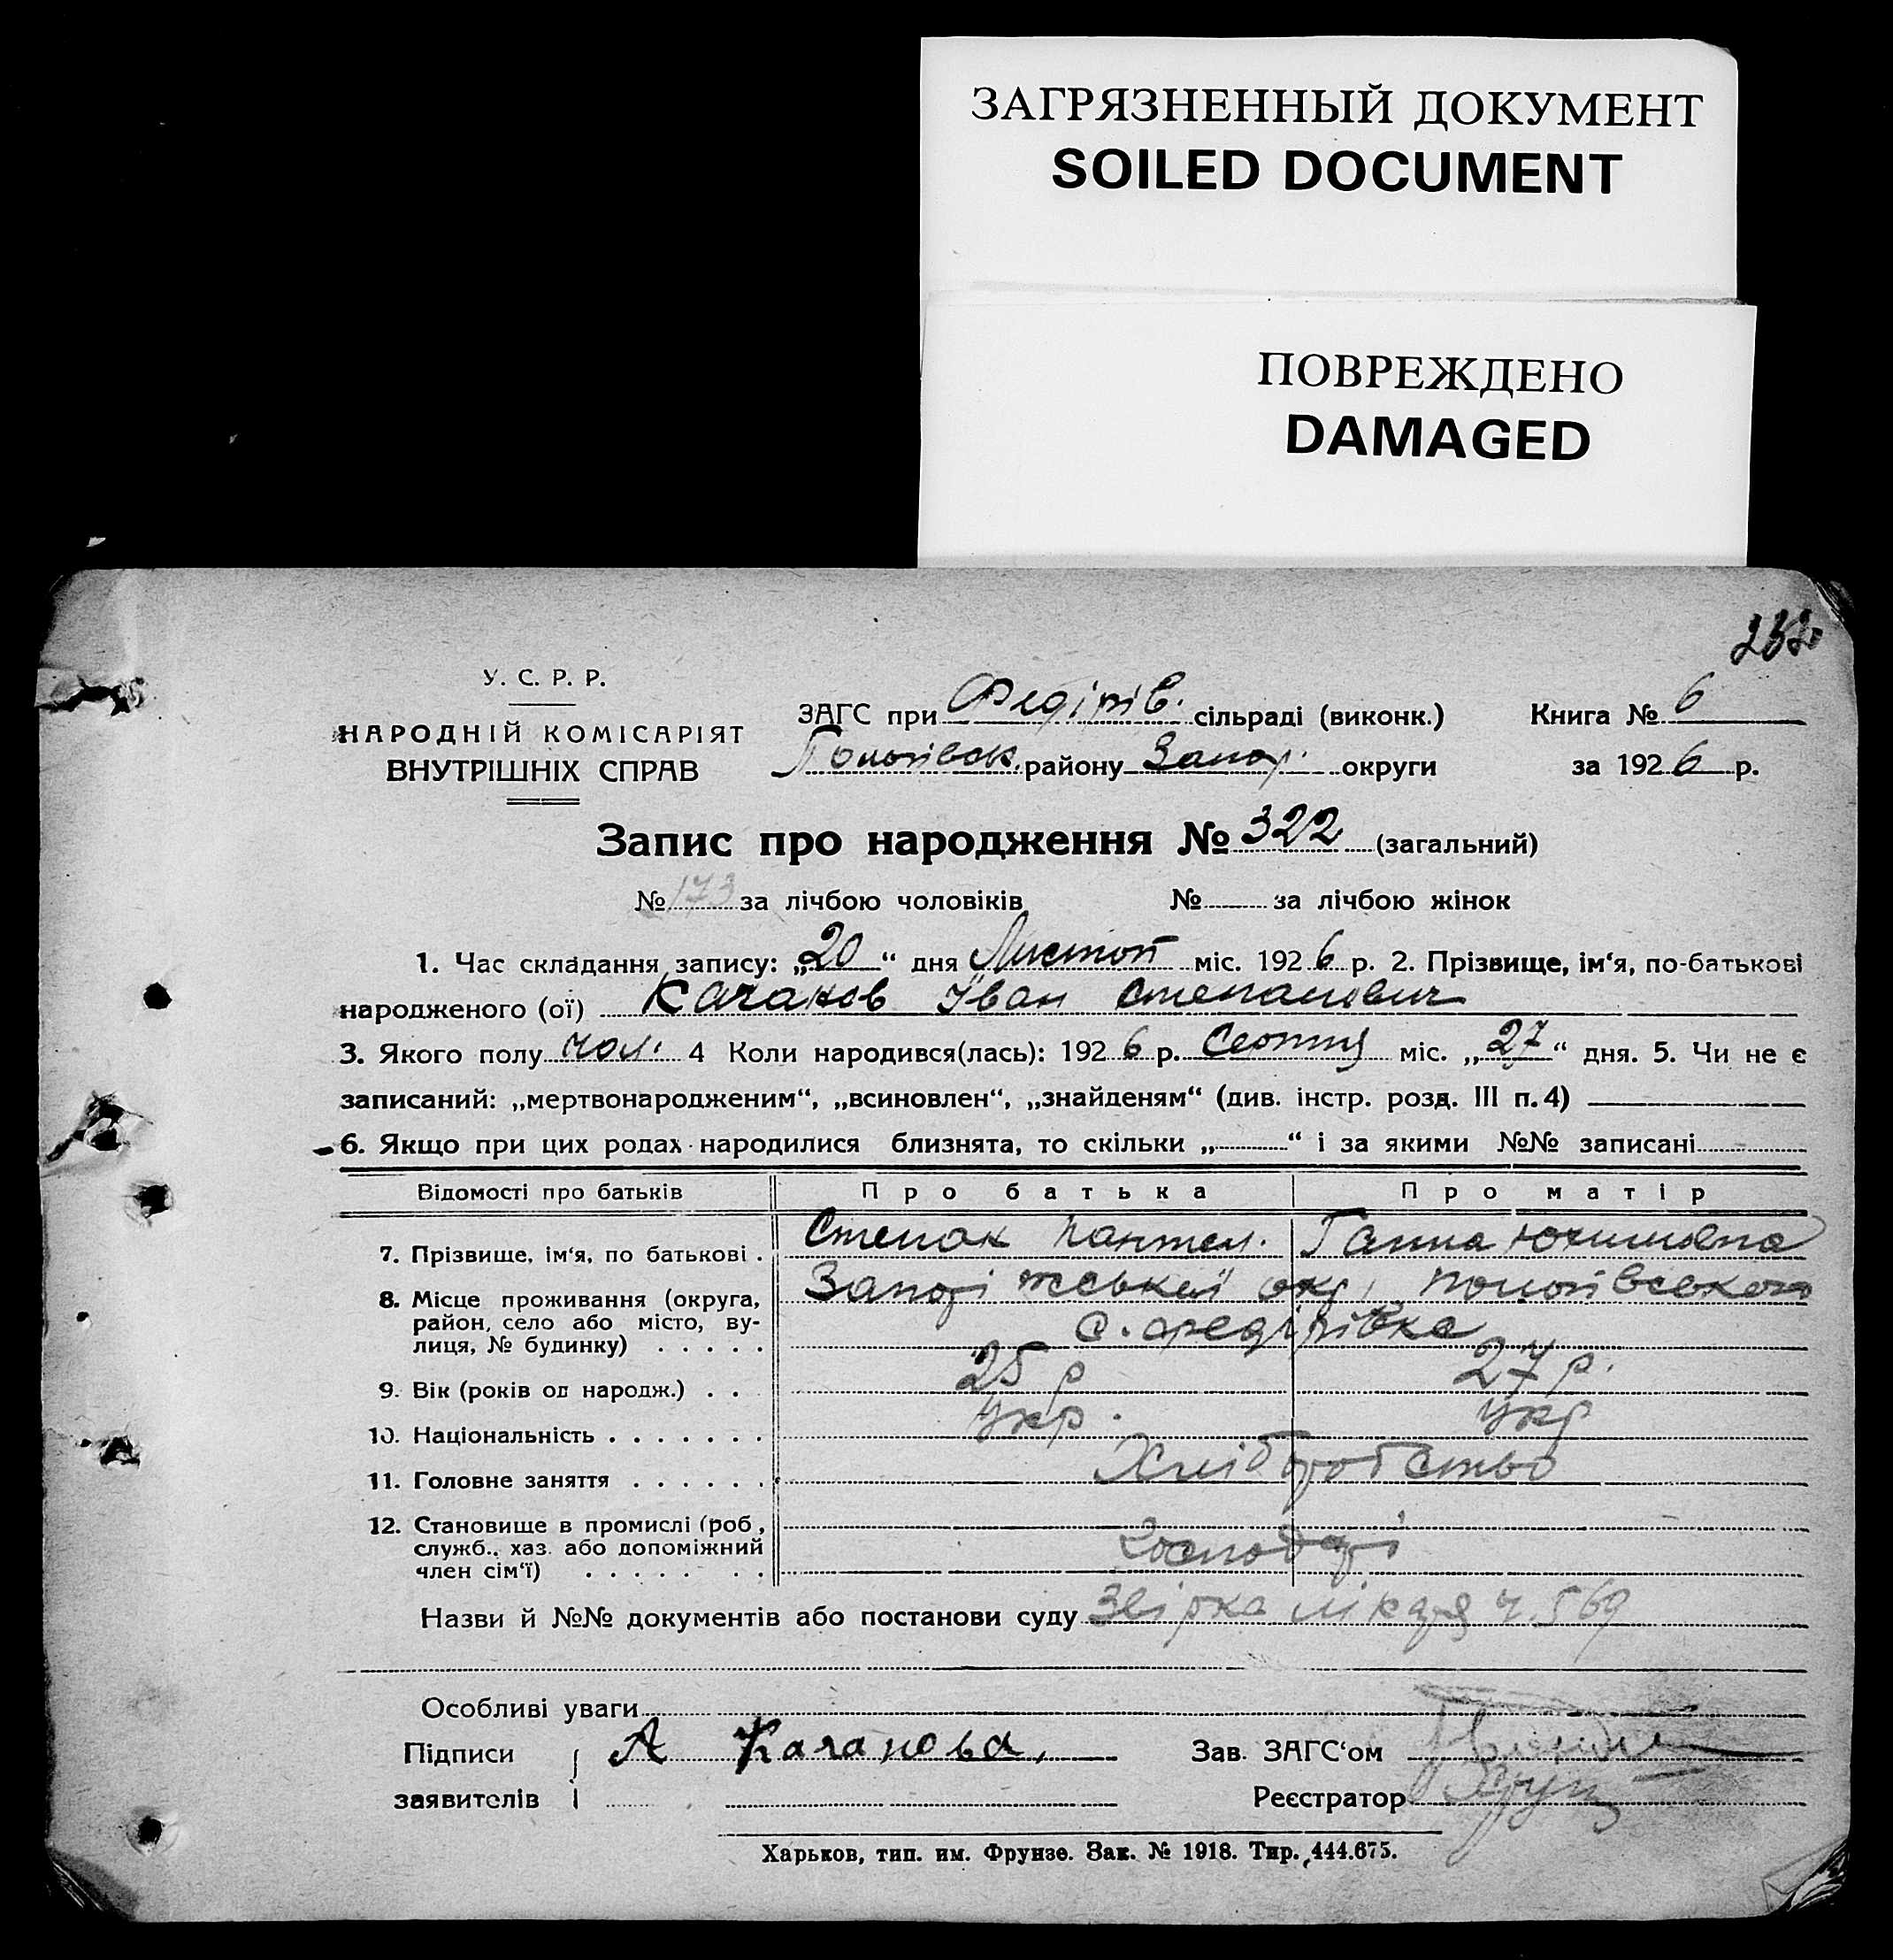 ЗАГРЯЗНЕННЫЙ ДОКУМЕНТ
SOILED DOCUMENT
ПОВРЕЖДЕНО
DAMAGED
У. С. Р. Р.
НАРОДНІЙ КОМІСАРІЯТ
ВНУТРІШНІХ СПРАВ
ЗАГС при Федірів. сільраді (виконк.) Книга № 6
Пологівськ. району Запор. округи за 1926 р.
Запис про народження № 322 (загальний)
№ 173 за лічбою чоловіків № за лічбою жінок
1. Час складання запису: „20“ дня Листоп міс. 1926 р. 2. Прізвище, ім‘я, по-батькові
народженого (ої) Качанов Іван Степанович
3. Якого полу чол. 4 Коли народився(лась): 1926 р. Серпня міс. „27“ дня. 5. Чи не є
записаний: „мертвонародженим“, „всиновлен“, „знайденям“ (див. інстр. розд. III п. 4)
6. Якщо при цих родах народилися близнята, то скільки „ “ і за якими №№ записані
Відомості про батьків Про батька Про матір
7. Прізвище, ім‘я, по батькові . Степан Пантел. Ганна Юхимовна
8. Місце проживання (округа, Запоріжської окр, Пологівського
район, село або місто, ву- с. Федірівка
лиця, № будинку) . . . . .
9. Вік (років од народж.) . . 25 р 27 р.
10. Національність . . . . . . . укр. укр
11. Головне заняття . . . . . . Хліборобство
12. Становище в промислі (роб.,
служб., хаз. або допоміжний Господарі
член сім‘ї) . . . . . . .
Назви й №№ документів або постанови суду Звірка лікаря ч. 569
Особливі уваги
Підписи А Качанова, Зав. ЗАГС‘ом
заявителів Реєстратор
Харьков, тип. им. Фрунзе. Зак. № 1918. Тир. 444.675.